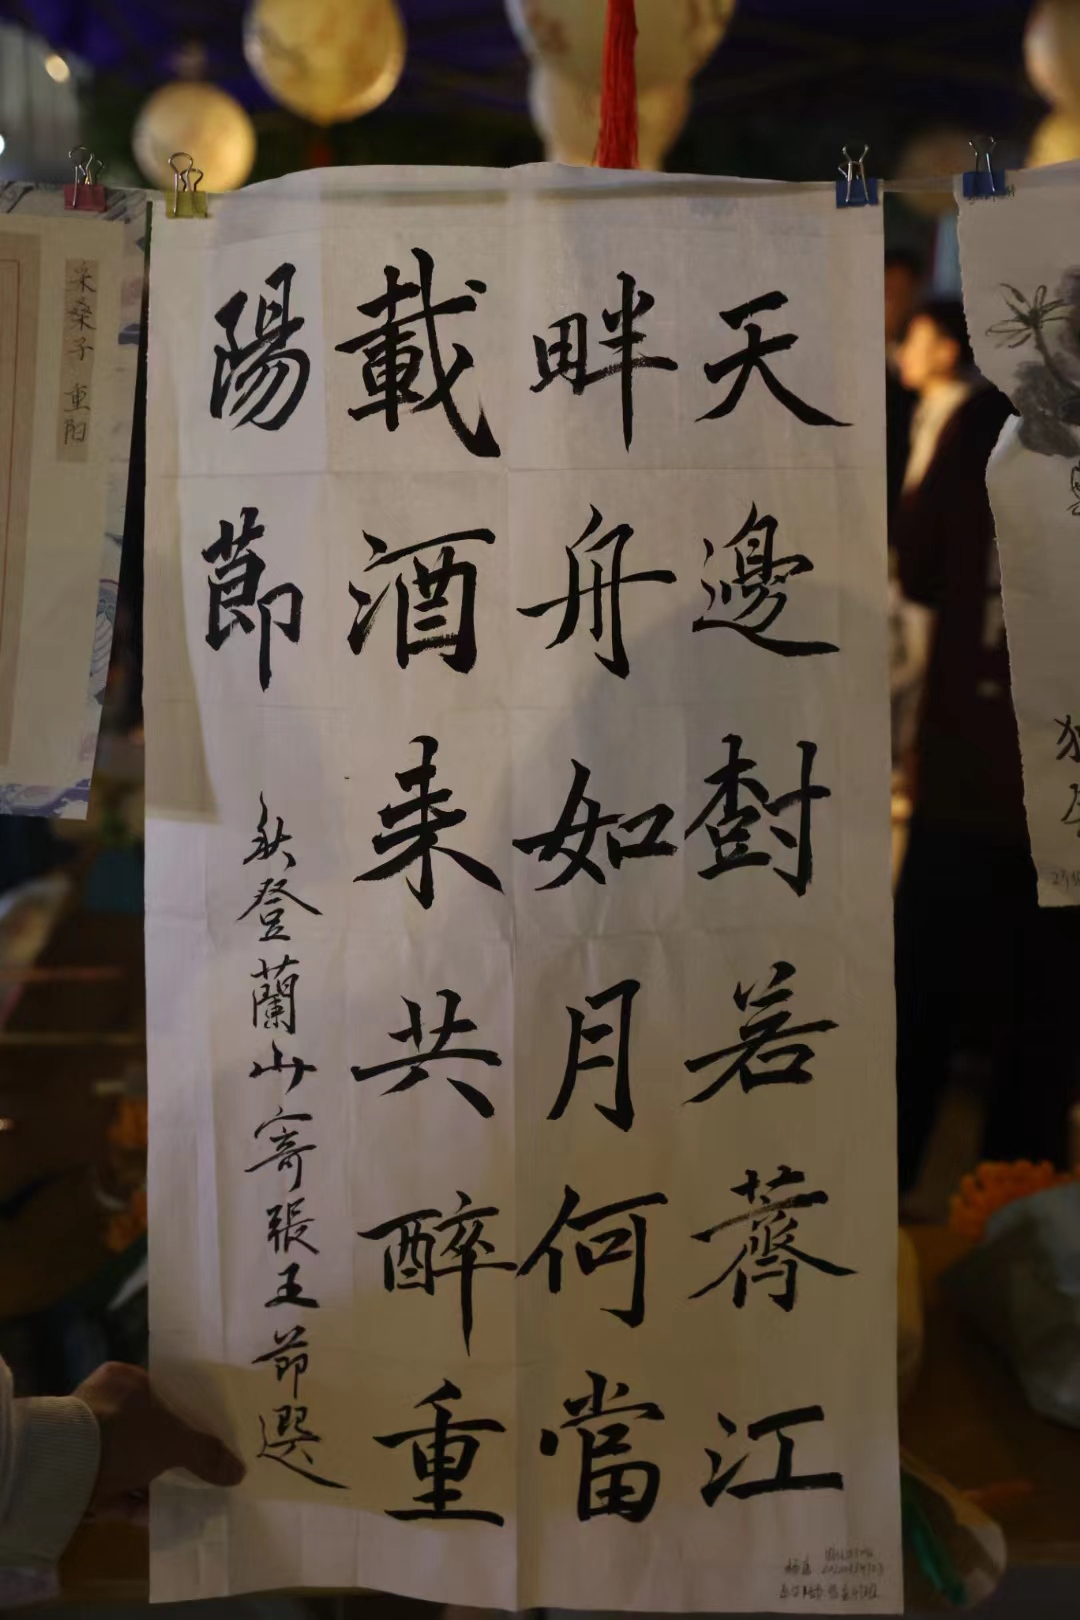 天邊樹若薺江
畔舟如月何當
載酒来共醉重
陽節
秋登蘭山寄張王節選
采桑子 重阳